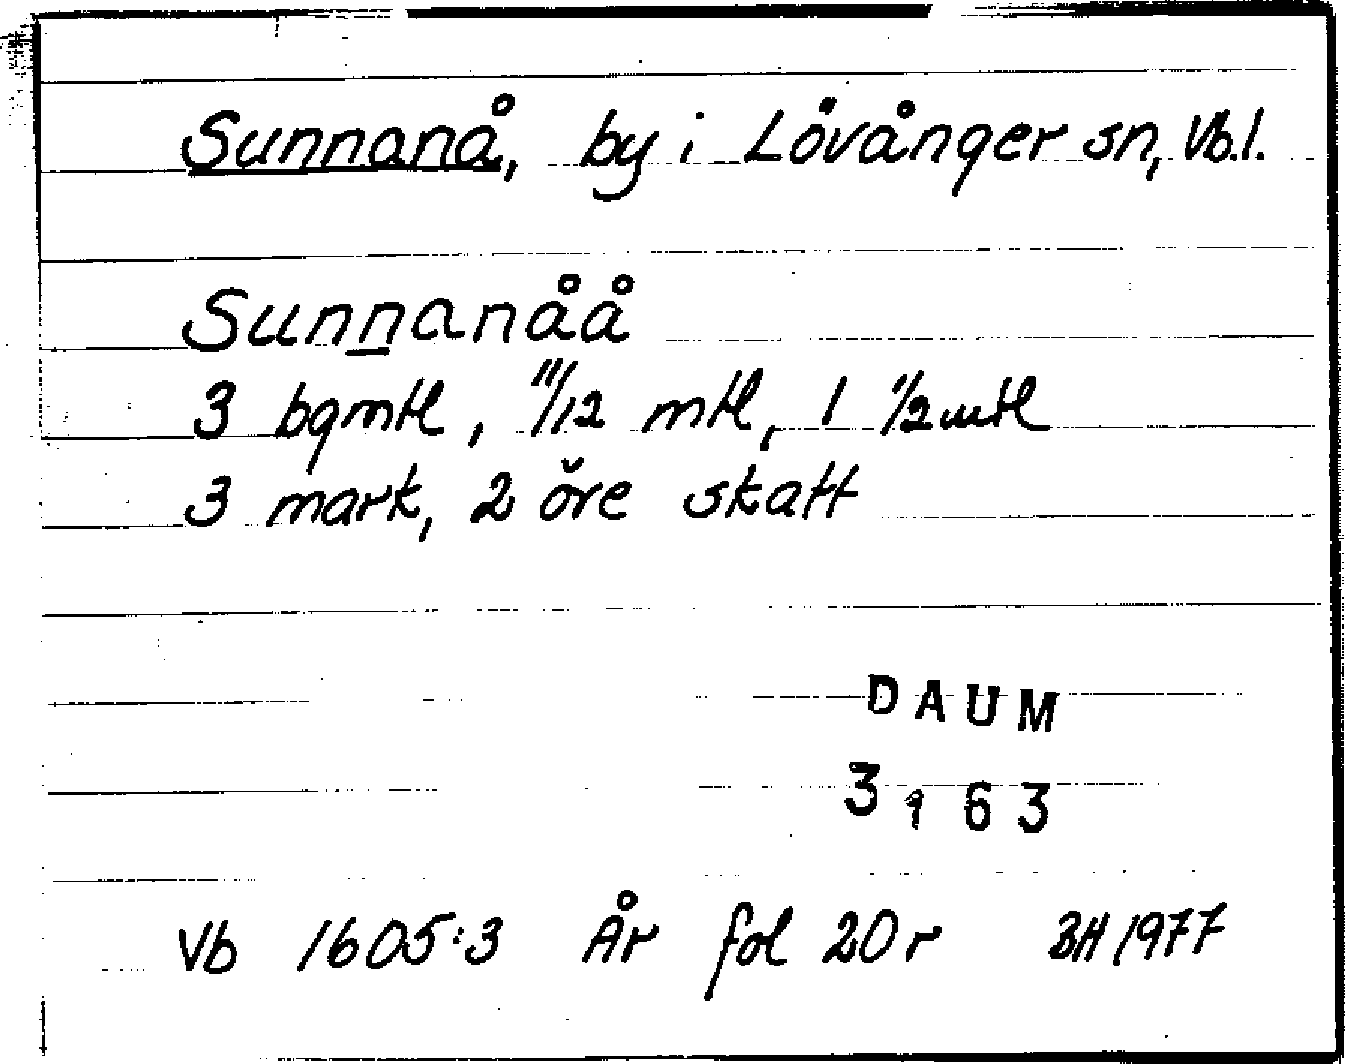 Sunnanå, by i Lövånger sn, Vb.l.
Sunnanåå
3 bgmtl, 11/12 mtl, 1 1/2 mtl
3 mark, 2 öre skatt
DAUM
3163
Vb 1605:3 År fol 20 r BH 1977